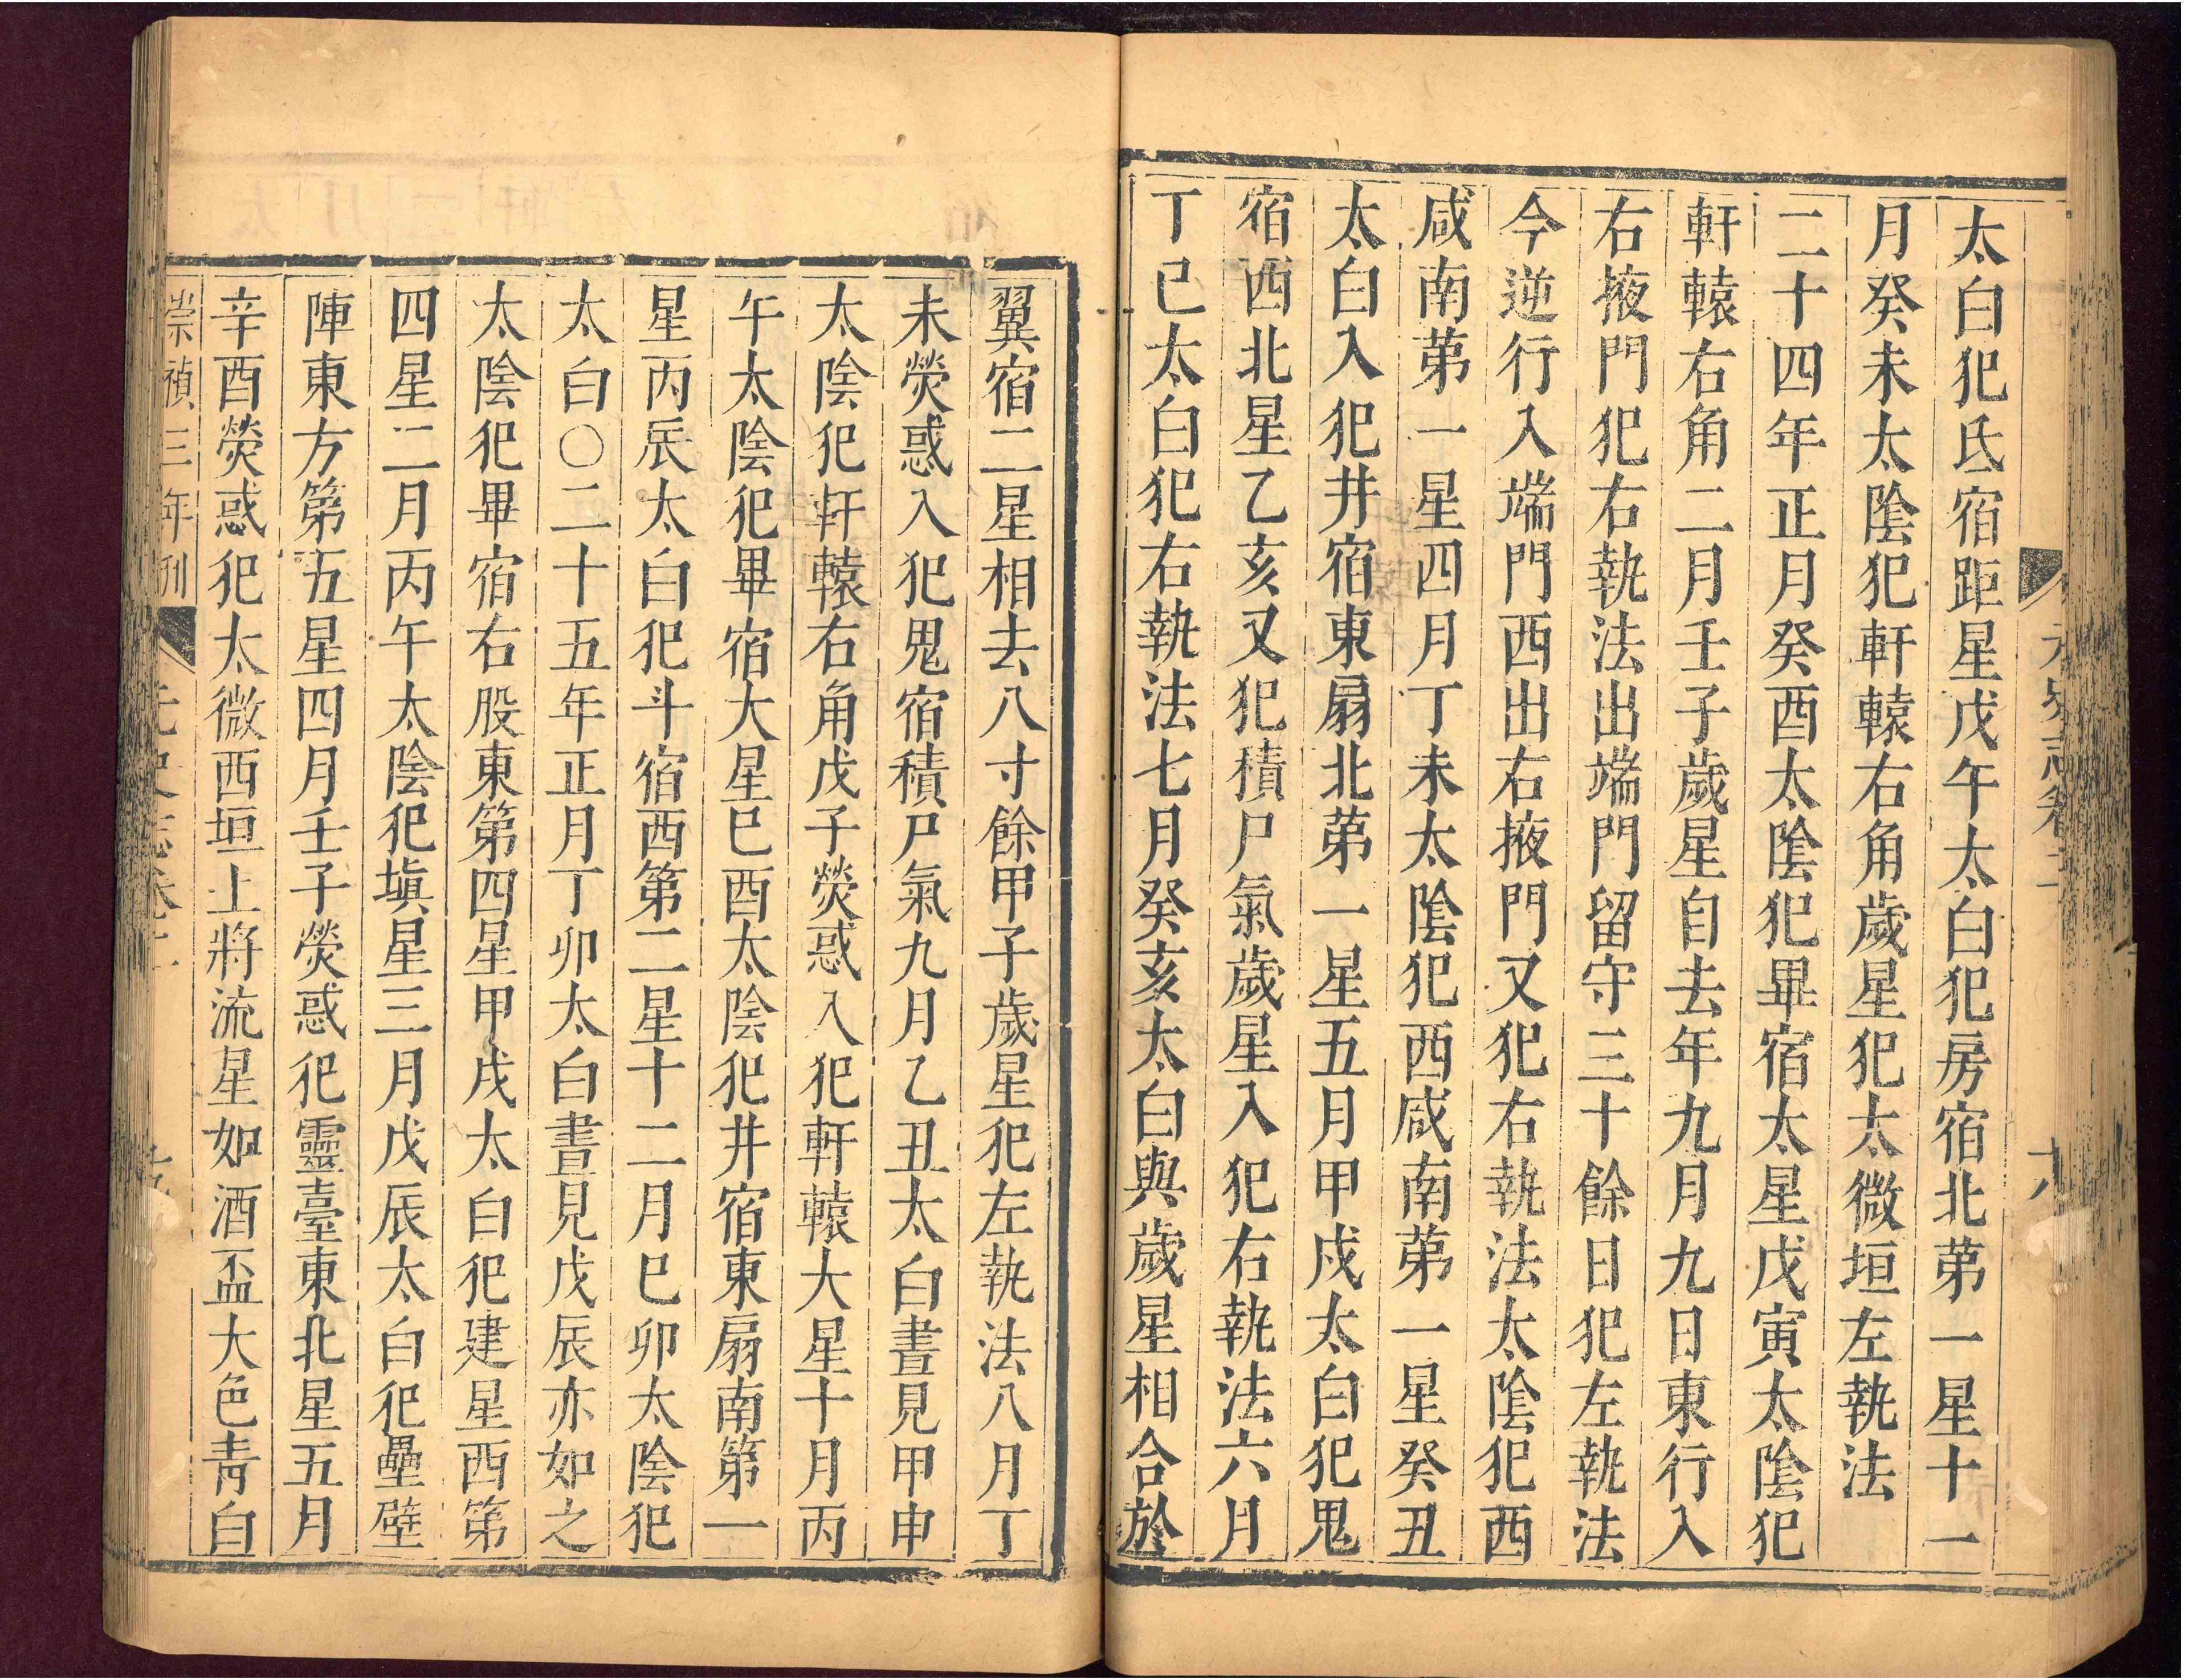 太白犯氐宿距星戊午太白犯房宿北第一星十一
月癸未太陰犯軒轅右角歲星犯太微垣左執法
二十四年正月癸酉太陰犯畢宿太星戊寅太陰犯
軒轅右角二月壬子歲星自去年九月九日東行入
右掖門犯右執法出端門留守三十餘日犯左執法
今逆行入端門西出右掖門又犯右執法太陰犯西
咸南第一星四月丁未太陰犯西咸南第一星癸丑
太白入犯井宿東扇北第一星五月甲戌太白犯鬼
宿西北星乙亥又犯積尸氣歲星入犯右執法六月
丁巳太白犯右執法七月癸亥太白與歲星相合於
翼宿二星相去八寸餘甲子歲星犯左執法八月丁
未熒惑入犯鬼宿積尸氣九月乙丑太白晝見甲申
太陰犯軒轅右角戊子熒惑入犯軒轅大星十月丙
午太陰犯畢宿大星巳酉太陰犯井宿東扇南第一
星丙辰太白犯斗宿西第二星十二月巳卯太陰犯
太白〇二十五年正月丁卯太白晝見戊辰亦如之
太陰犯畢宿右股東第四星甲戌太白犯建星西第
四星二月丙午太陰犯塡星三月戊辰太白犯壘壁
陣東方第五星四月壬子熒惑犯靈臺東北星五月
辛酉熒惑犯太微西垣上將流星如酒盃大色青白
崇禎三年刊